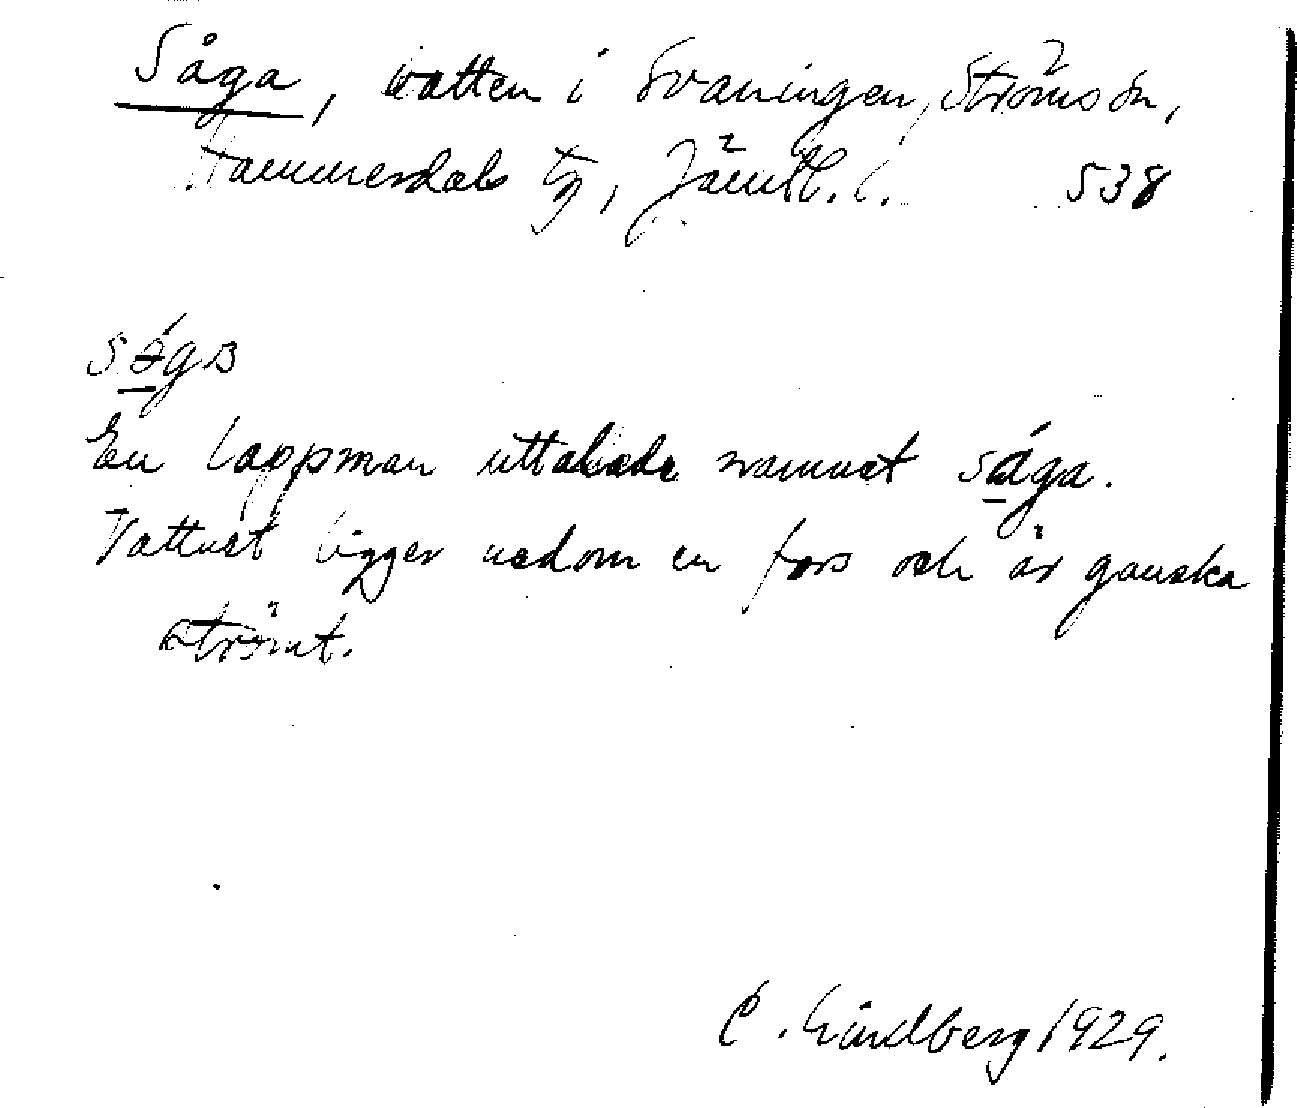 Såga, vatten i Svaningen, Ströms sn,
Hammerdals tg, Jämtl. l. 538
En lappman uttalade namnet såga.
Vattnet ligger nedom en fors och är ganska
strömt.
C. Lindberg 1929.